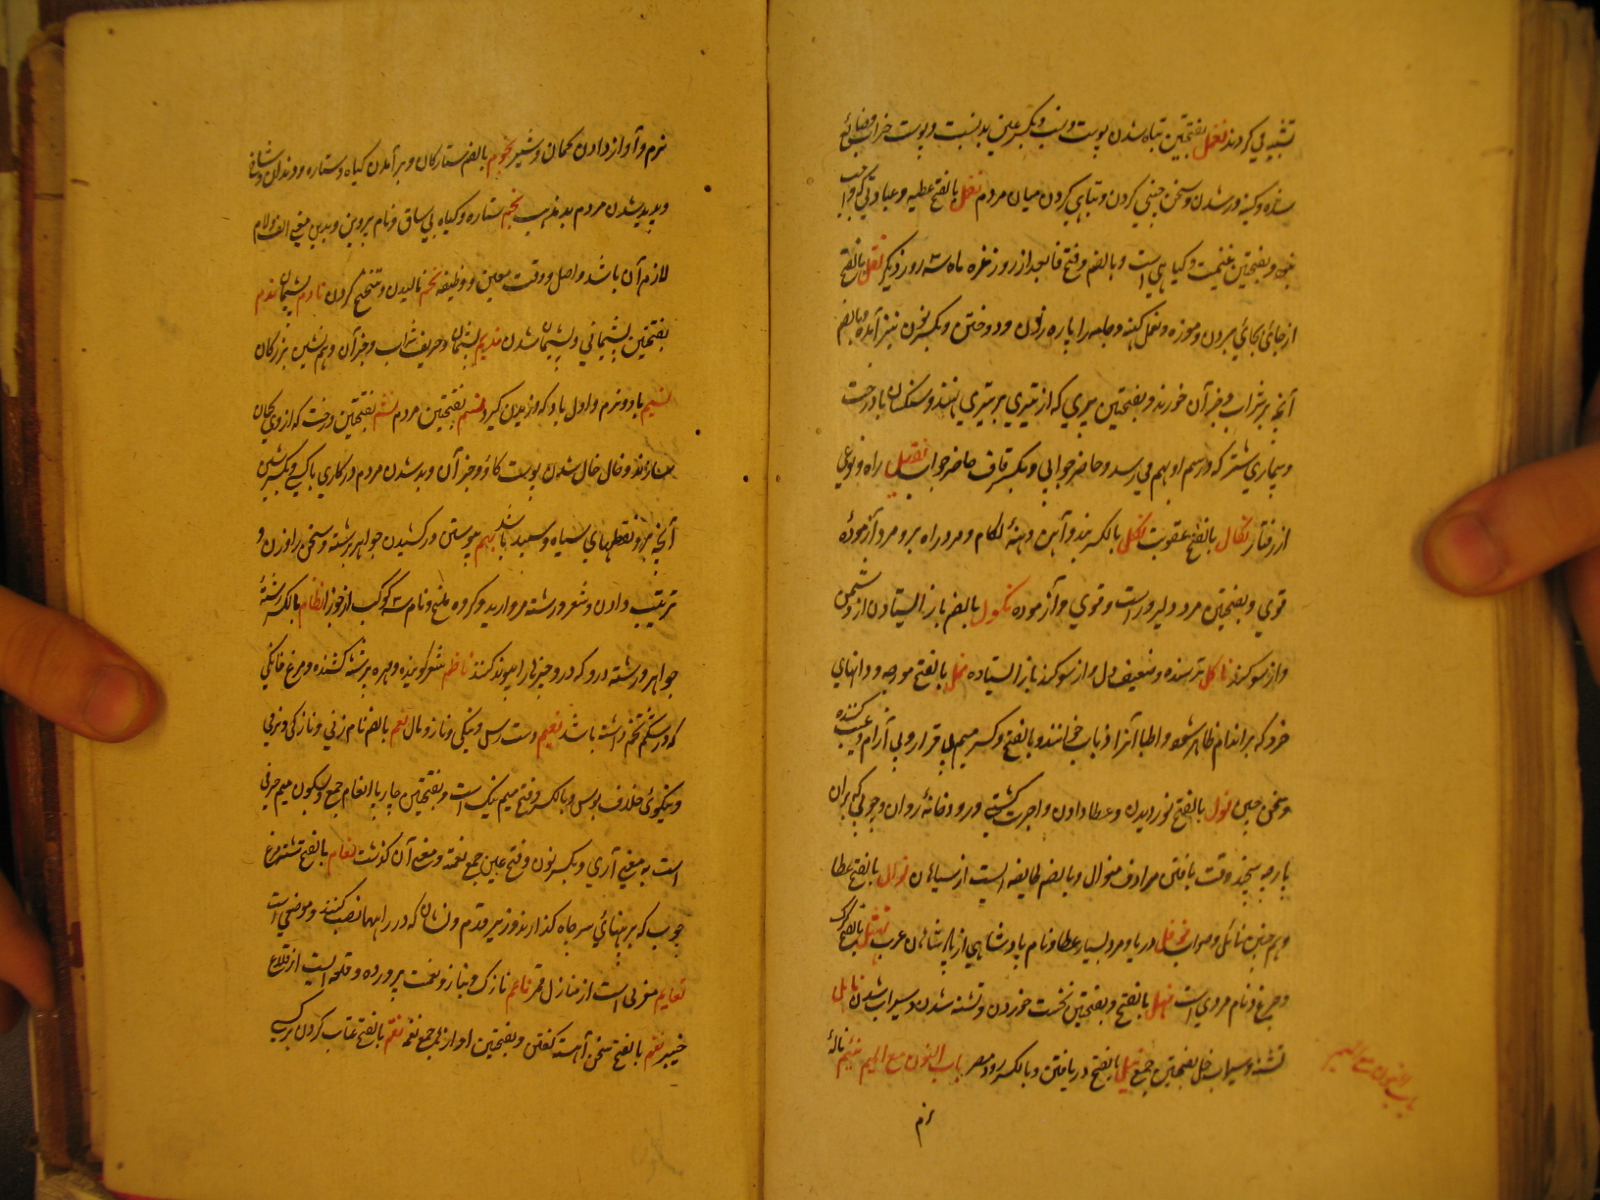 تشبیه می کردند نغل بفتحتین تباه شدن پوست و بکسر عین بد نسبت و پوست خراب
و کینه ور شدن و سخن چینی کردن و تباهی کردن میان مردم نفل بالفتح عطیه و عبادتی که واجب
و بفتحتین غنیمت و گیاهی است و بالضم و فتح فا بعد از روز غره ماه سه روز دیگر نقل بالفتح
از جای بجای بردن و موزه و نعل کهنه و جامه را پاره زدن و دوختن و بکسر نون نیز آمده و بالضم
آنچه بر شراب و جز آن خورند و بفتحتین پری که از تیری بر تیری نهند و سنگستان با درخت
و بیماری شتر که در سم او بهم می رسد و حاضر جوابی و بکسر قاف حاضر جواب نقیل راه و نوعی
از رفتار نکال بالفتح عقوبت نکل بالکسر بند و آهن دهنهٔ لگام و مرد راه برو مرد آزموده
قوی و بفتحتین مرد دلیر و راست و قوی و آزموده نکول بالضم باز ایستادن از دشمن
و از سوگند ناکل ترسنده و ضعیف دل و از سوگند باز ایستاده نمل بالفتح مورچه و دانهای
خرد که بر اندام ظاهر شود و اطبا آنرا ذباب خوانند و بالفتح و کسر میم بی قرار و بی آرام و عیب کننده
و سخن چین نول بالفتح نوردیدن و عطا دادن و اجرت کشتی و رودخانهٔ روان و چوبی که بران
پارچه پیچند وقت بافتن مرادف منوال و بالضم طایفه ایست از سیاهان نوال بالفتح عطا
و هم چنین نائل و صواب نوفل دریا و مرد بسیار عطا و نام پادشاهی از پادشاهان عرب نهشل بالفتح گرگ
و چرغ و نام مردی است نهل بالفتح و بفتحتین نخست خوردن و تشنه شدن و سیراب شدن ناهل
تشنه و سیراب نهل بفتحتین جمع نیل بالفتح دریافتن و بالکسر رود مصر باب النون مع المیم نئیم نالهٔ
باب النون مع المیم
نرم و آواز دادن کمان و شیر نجوم بالضم ستارگان و بر آمدن گیاه و ستاره و دندان و شاخ
و پدید شدن مردم بد مذهب نجم ستاره و گیاه بی ساق و نام پروین و بدین معنی الف و لام
لازم آن باشد و اصل و وقت معین و وظیفه نحم نالیدن و تنحنح کردن نادم پشیمان ندم
بفتحتین پشیمانی و پشیمان شدن ندیم پشیمان و حریف شراب و جز آن و هم نشین بزرگان
نسیم باد و نرم و اول باد که وزیدن گیرد نسم بفتحتین مردم نشم بفتحتین درخت که از وی کمان
سازند و خال خال شدن پوست گاو و جز آن و بد شدن مردم در کاری با کسی و بکسر شین
آنچه برو نقطهای سیاه و سپید باشد نظم پیوستن و در کشیدن جواهر برشته و سخن را وزن و
ترتیب دادن و شعر و رشته مروارید و گروه ملخ و نام سه کوکب از جوزا نظام بالکسر رشتهٔ
جواهر و رشته درو که درو چیزها را پیوند کنند ناظم شعر گوینده و مهره برشته کشنده و مرغ خانگی
که در شکم تخم داشته باشد نعیم دست رس و نیکی و ناز و مال نعم بالضم نام زنی و نازکی و نرمی
و نیکوئی خلاف بؤس و بالکسر و فتح میم نیک است و بفتحتین چارپا انعام جمع و بسکون میم حرفی
است به معنی آری و بکسر نون و فتح عین جمع نعمة و معنی آن گذشت نعام بالفتح شترمرغ
چوب که بر پهنای سر چاه گذارند و زیر قدم و نشان که در راهها نصب کنند و موضعی است
نعایم منزلی است از منازل قمر ناعم نازک و بناز و نعمت پرورده و قلعه ایست از قلاع
خیبر نغم بالفتح سخن آهسته گفتن و بفتحتین آوازها جمع نغمه نقم بالفتح عتاب کردن بر کسی